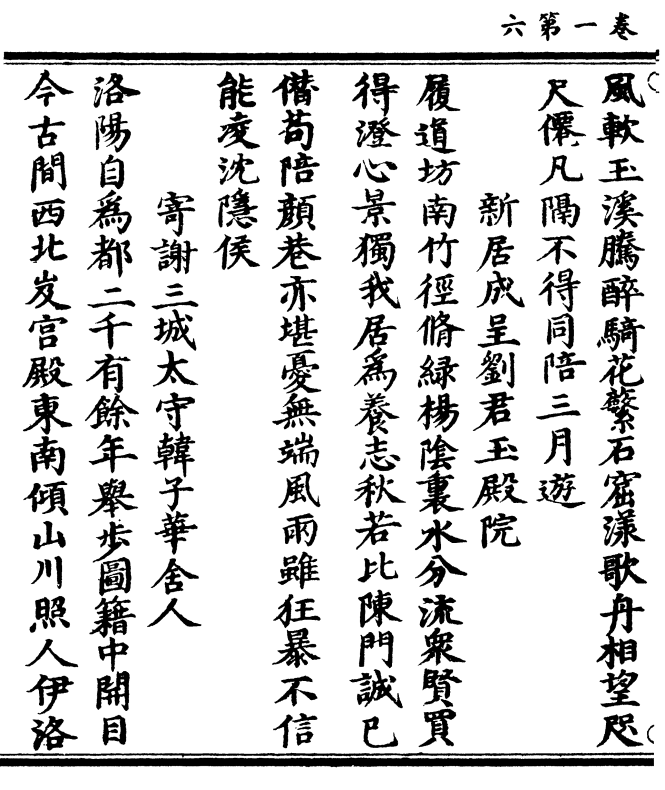 卷一第六
風軟玉溪騰醉騎花繁石窟漾歌舟相望咫
尺僊凡隔不得同陪三月遊
新居成呈劉君玉殿院
履道坊南竹徑脩綠楊陰裏水分流衆賢買
得澄心景獨我居爲養志秋若比陳門誠已
僭苟陪顏巷亦堪憂無端風雨雖狂暴不信
能凌沈隱侯
寄謝三城太守韓子華舍人
洛陽自爲都二千有餘年舉步圖籍中開目
今古間西北岌宮殿東南傾山川照人伊洛